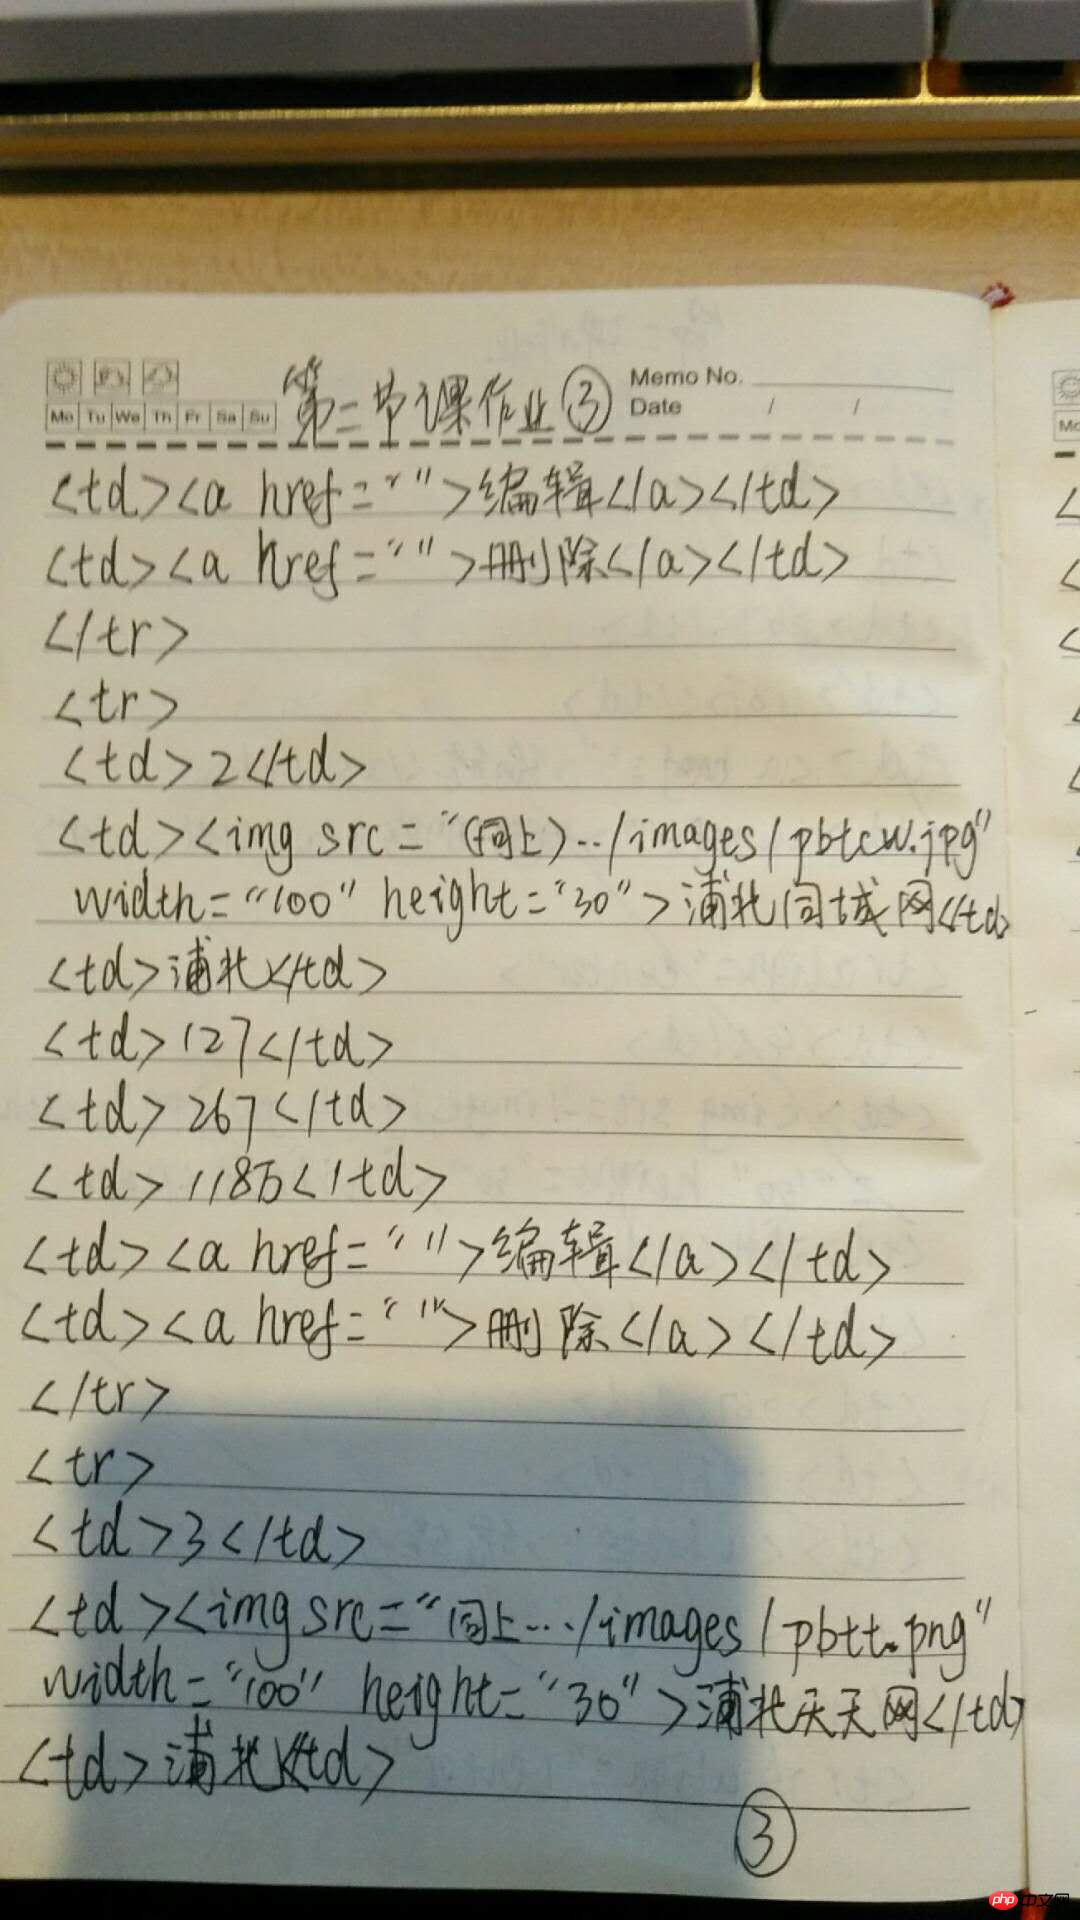 Memo No.
Mo Tu We Th Fr Sa Su
第二节课作业③
Date / /
<td><a href="">编辑</a></td>
<td><a href="">删除</a></td>
</tr>
<tr>
<td>2</td>
<td><img src="(同上)../images/pbtcw.jpg"
width="100" height="30">浦北同城网</td>
<td>浦北</td>
<td>127</td>
<td>267</td>
<td>118万</td>
<td><a href="">编辑</a></td>
<td><a href="">删除</a></td>
</tr>
<tr>
<td>3</td>
<td><img src="同上.../images/pbtt.png"
width="100" height="30">浦北天天网</td>
<td>浦北</td>
③
php中文网